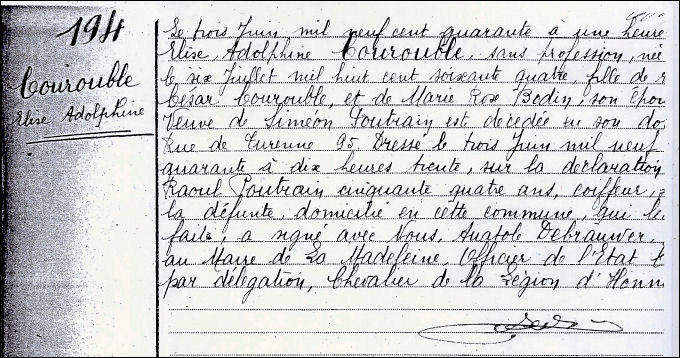 194
Courouble
Elise Adolphine
Le trois Juin mil neuf cent quarante à une heure
Elise, Adolphine Courouble, sans profession, née
le six Juillet mil huit cent soixante quatre, fille de
César Courouble, et de Marie Rose Bodin, son épou
Veuve de Siméon Poutrain est décédée en son do
Rue de Turenne 95. Dressé le trois Juin mil neuf
quarante à dix heures trente, sur la déclaration
Raoul Poutrain cinquante quatre ans, coiffeur,
la défunte, domicilié en cette commune, qui le
faite, a signé avec Nous, Anatole Debrauwer,
au Maire de La Madeleine, Officier de l'Etat
par délégation, Chevalier de la Légion d'Honn